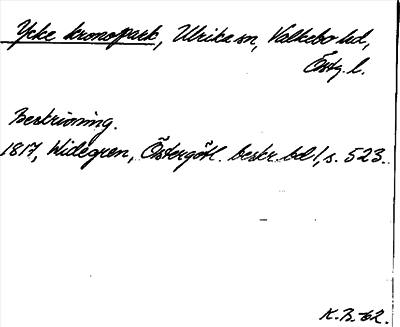 Ycke kronopark, Ulrika sn, Valkebo hd,
Östg. l.
Beskrivning.
1817, Widegren, Östergötl. beskr. bd 1, s. 523.
K.B. -62.